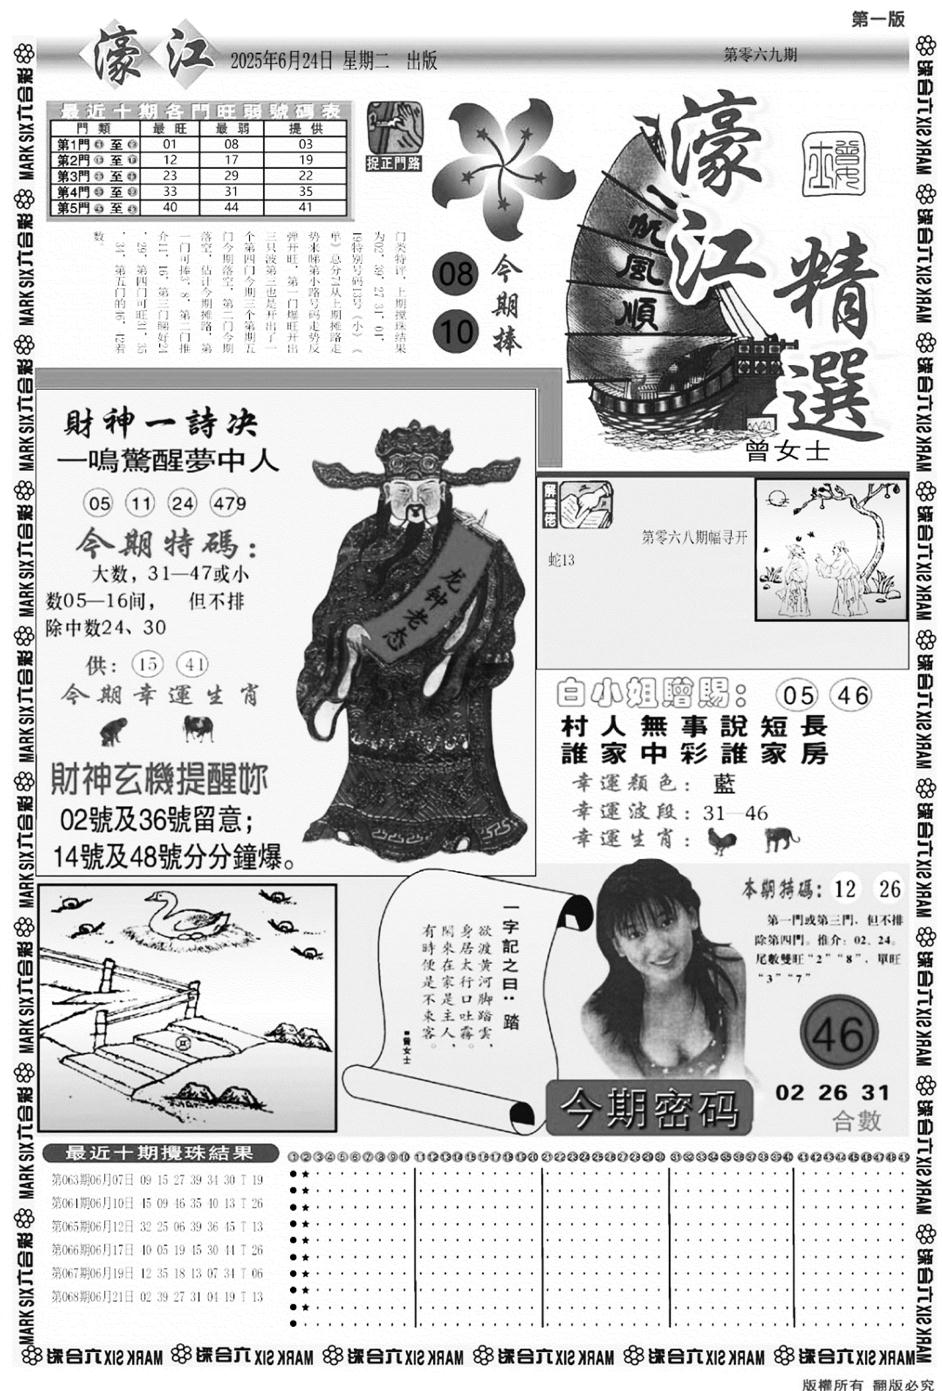 第一版
濠江
2025年6月24日 星期二 出版
第零六九期
最近十期各門旺弱號碼表
門類 最旺 最弱 提供
第1門 至 01 08 03
第2門 至 12 17 19
第3門 至 23 29 22
第4門 至 33 31 35
第5門 至 40 44 41
捉正門路
今期捧
08
10
门类特评，上期搅珠结果
为02，39，27，31，04，
19特别号码13号（小）（
单）总分74从上期摊路走
势来睇第小路号码走势反
弹开旺，第一门爆旺开出
三只波第三也是开出了一
个第四门今期三个第期五
门今期落空，第二门今期
落空，估计今期摊路，第
一门可捧3，8，第二门推
介11，16，第三门睇好24
，29，第四门可旺31，35
，34，第五门的46，42着
数。
一帆風順
濠江
精選
曾女士
財神一詩决
一鳴驚醒夢中人
05 11 24 479
今期特碼：
大数，31—47或小
数05—16间， 但不排
除中数24、30
供：15 41
今期幸運生肖
財神玄機提醒妳
02號及36號留意；
14號及48號分分鐘爆。
龙钟老态
解畫佬
第零六八期幅寻开
蛇13
白小姐贈賜：05 46
村人無事說短長
誰家中彩誰家房
幸運顏色：藍
幸運波段：31—46
幸運生肖：
一字記之曰：踏
欲渡黃河脚踏雲，
身居太行口吐霧。
閑來在家是主人，
有時便是不來客。
■曾女士
本期特碼：12 26
第一門或第三門，但不排
除第四門。推介：02、24。
尾數雙旺“2”“8”，單旺
“3”“7”
46
今期密码
02 26 31
合數
最近十期攪珠結果
第063期06月07日 09 15 27 39 34 30 T 19
第064期06月10日 45 09 46 35 40 13 T 26
第065期06月12日 32 25 06 39 36 45 T 13
第066期06月17日 40 05 19 45 30 44 T 26
第067期06月19日 12 35 18 13 07 34 T 06
第068期06月21日 02 39 27 31 04 19 T 13
MARK SIX六合彩
版權所有 翻版必究